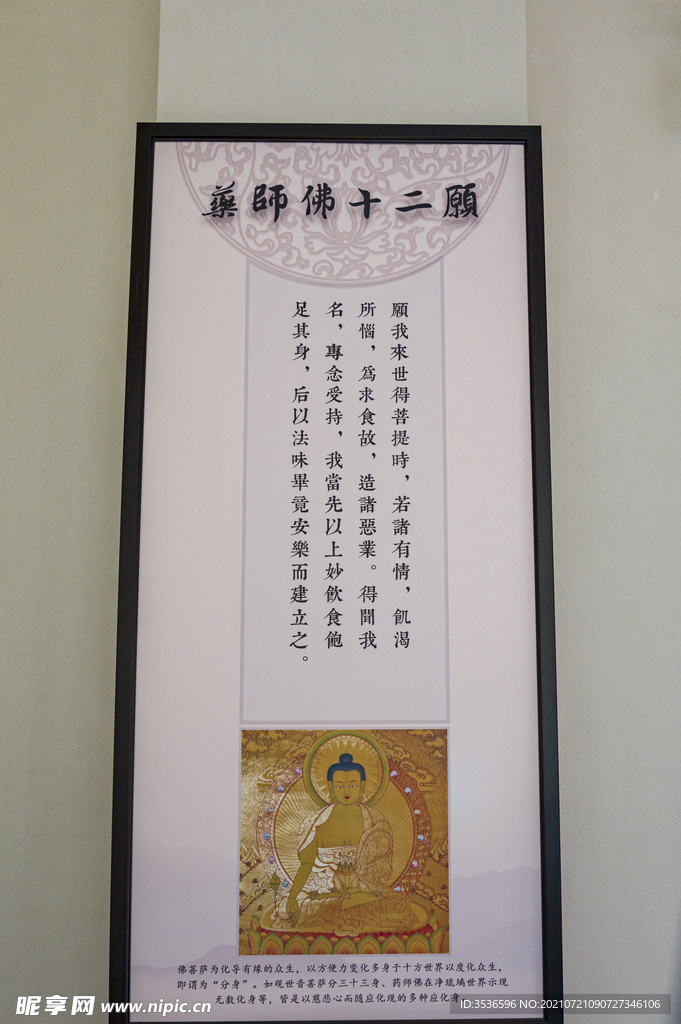 藥師佛十二願
願我來世得菩提時，若諸有情，飢渴
所惱，爲求食故，造諸惡業。得聞我
名，專念受持，我當先以上妙飲食飽
足其身，后以法味畢竟安樂而建立之。
佛菩萨为化导有缘的众生，以方便力变化多身于十方世界以度化众生，
即谓为“分身”。如观世音菩萨分三十三身、药师佛在净琉璃世界示现
无数化身等，皆是以慈悲心而随应化现的多种应化身
昵享网 www.nipic.cn
ID:3536596 NO:20210721090727346106